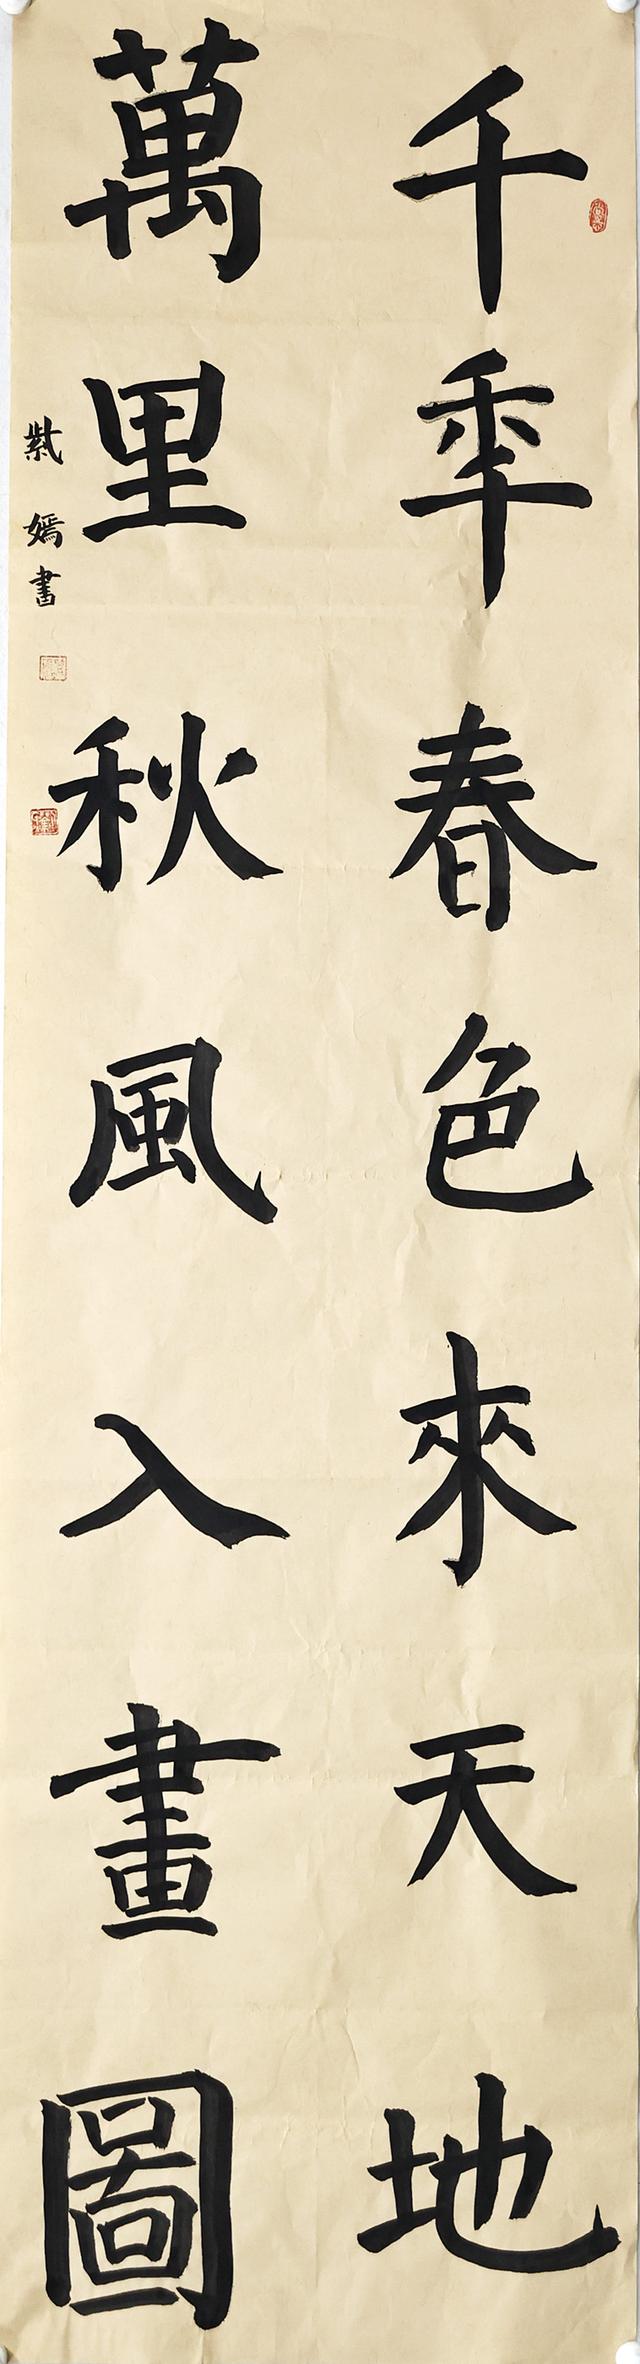 千秊春色來天地
萬里秋風入畫圖
紫嫣書